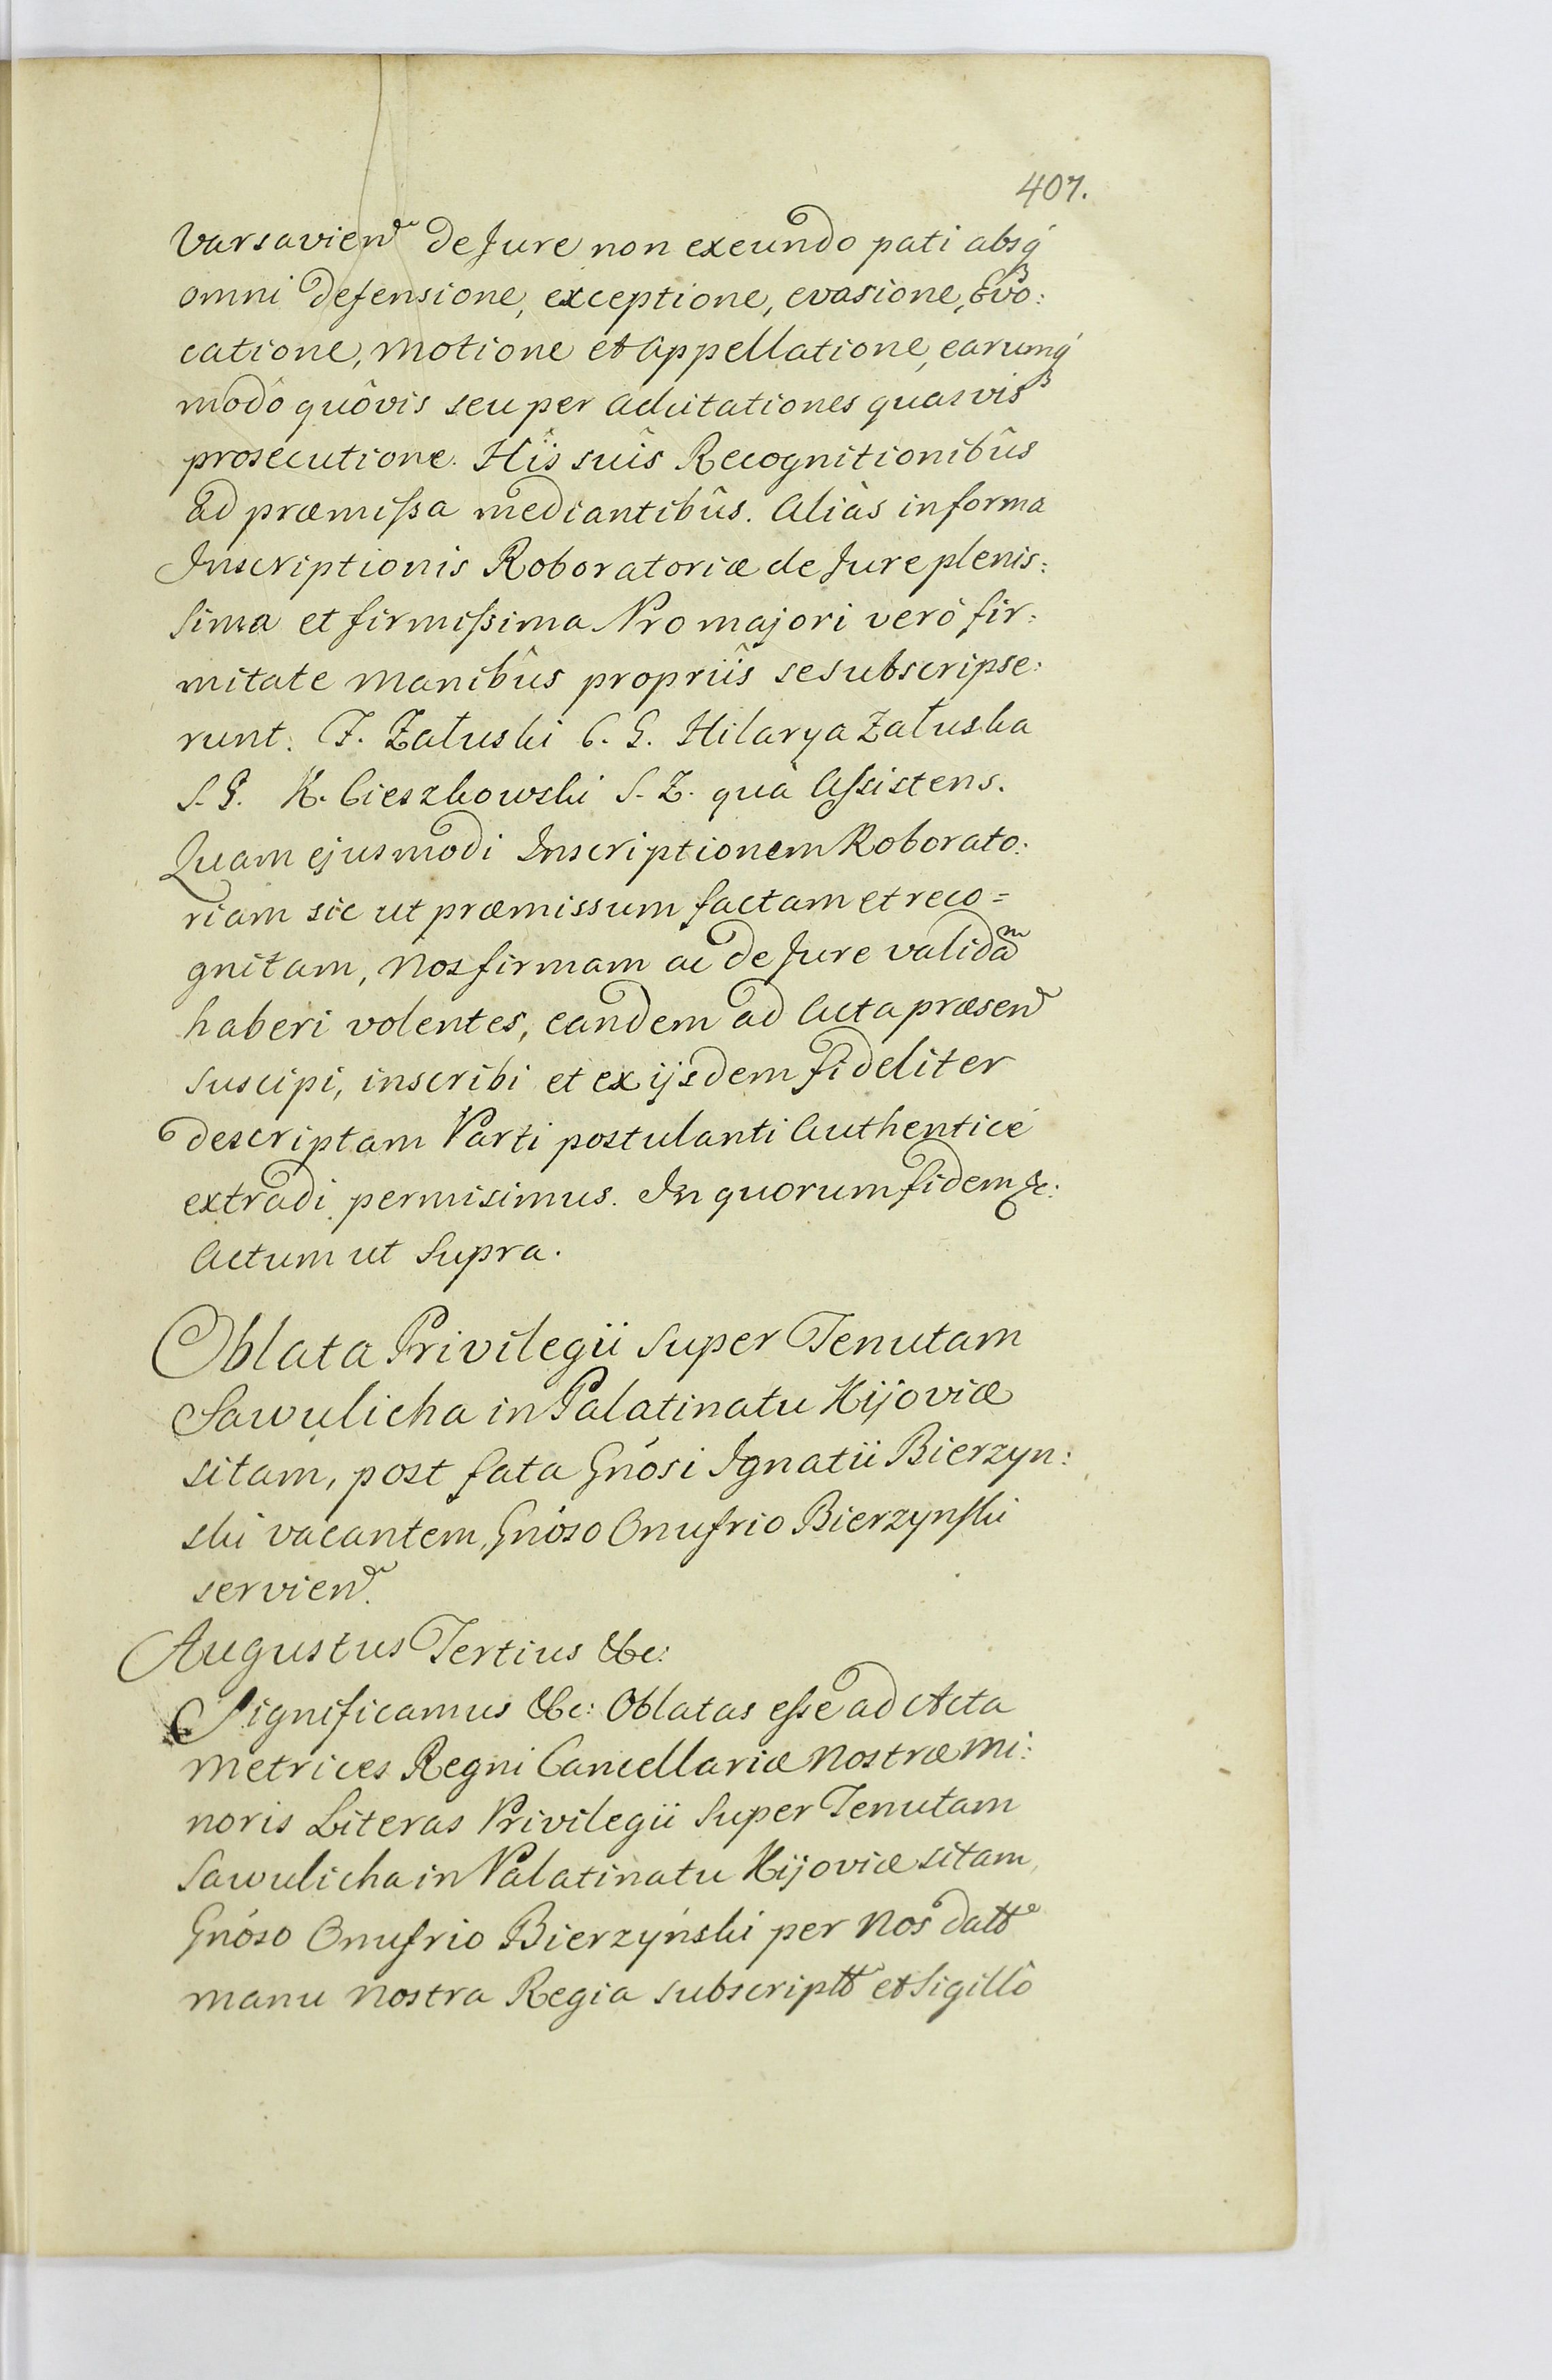 407.
Varsavien̄ de Jure non exeundo pati absq́
omni defensione, exceptione, evasione, Evo:
catione, motione et Appellatione, earumq́
modô quôvis seu per Adcitationes quasvis
prosecutione. Hîis suîs Recognitionibûs
ad præmißa mediantibûs. Aliàs in forma
Inscriptionis Roboratoriæ de Jure plenis:
sima et firmißima Pro majori verò fir:
mitate manibûs propriîs se subscripse:
runt. J. Załuski C. G. Hilarya Załuska
S. G. K. Cieszkowski S. Z. quà Aßistens.
Quam ejusmodi Inscriptionem Roborato:
riam sic ut præmissum factam et reco=
gnitam, Nos firmam ac de Jure validam
haberi volentes, eandem ad Acta præsen̄
suscipi, inscribi et ex ijsdem fideliter
descriptam Parti postulanti Authenticé
extradi permisimus. In quorum fidem &c:
Actum ut Supra.
Oblata Privilegii super Tenutam
Sawulicha in Palatinatu Kijoviæ
sitam, post fata Gńosi Ignatii Bierzyn:
ski vacantem, Gńoso Onufrio Bierzynski
servien̄.
Augustus Tertius &c:
Significamus &c: Oblatas eße ad Acta
Metrices Regni Cancellariæ Nostræ Mi:
noris Literas Privilegii super Tenutam
Sawulicha in Palatinatu Kijoviæ sitam,
Gńoso Onufrio Bierzyński per Nos datt̃
manu Nostra Regia subscriptt̃ et Sigillô